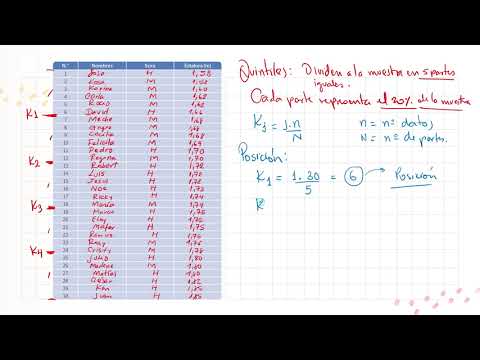 N.° Nombres Sexo Estatura (m)
1 José H 1,58
2 Rosa M 1,58
3 Karina M 1,60
4 Carla M 1,62
5 Rocío M
6 David H 1,66
7 Meche M 1,68
8 M 1,68
9 M 1,68
10 Felícita M 1,69
11 Pedro H 1,70
12 Regina M 1,70
13 Robert H 1,72
14 Luis H 1,72
15 Jesús H 1,72
16 Noe H 1,73
17 Ricky H 1,74
18 María M 1,74
19 Marco H 1,75
20 Eloy H 1,75
21 H 1,75
22 H 1,76
23 Rosy M 1,76
24 Cristy M 1,78
25 Julio H 1,80
26 M 1,80
27 Matías H 1,80
28 H 1,82
29 Ken H 1,85
30 Juan H 1,85
K1
K2
K3
K4
Quintiles: Dividen a la muestra en 5 partes
iguales.
Cada parte representa el 20% de la muestra
Kj = j.n / N
n = n° datos
N = n° de partes.
Posición:
K1 = 1.30 / 5 = 6 Posición
K